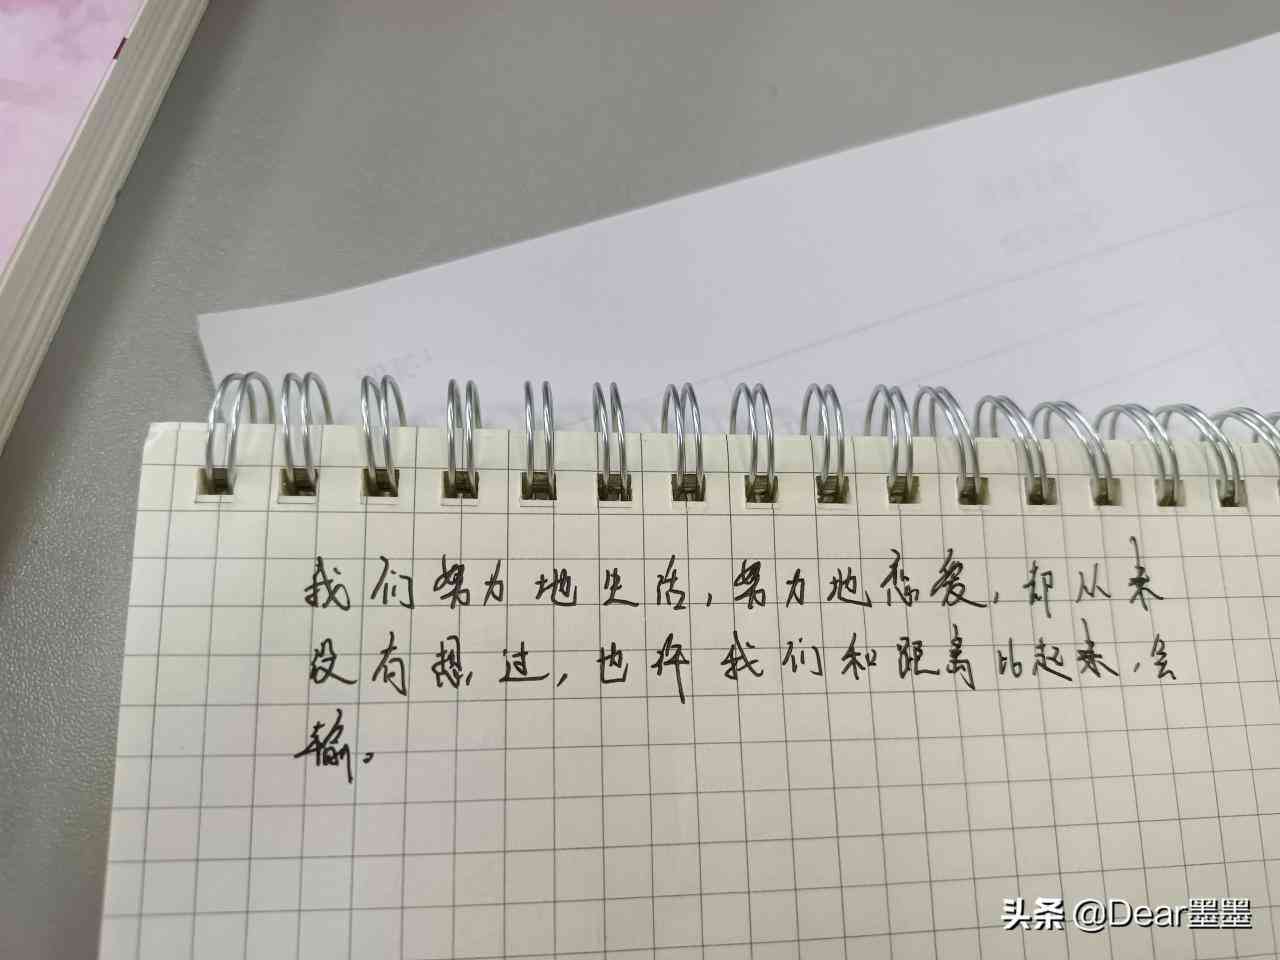 我们努力地生活,努力地恋爱,却从未
没有想过,也许我们和距离比起来,会
输。
头条 @Dear墨墨